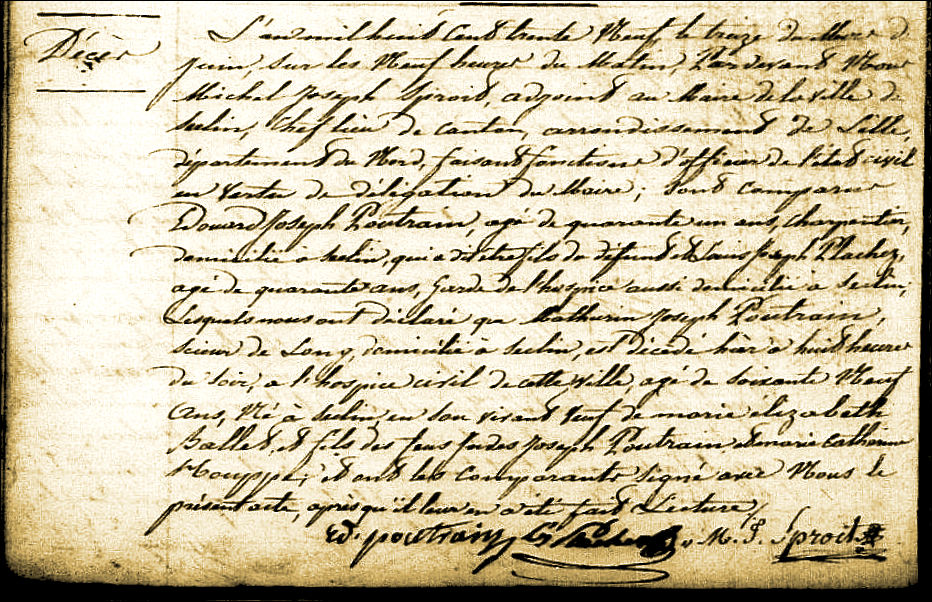 Décès
L'an mil huit cent trente Neuf le treize du Mois d
juin, sur les Neuf heures du Matin, Pardevant Nous
Michel Joseph Sproit, adjoint au Maire de la ville de
Seclin, Chef lieu de Canton, arrondissement de Lille,
département du Nord, faisant fonctions d'officier de l'état civil
en vertu de délégation du Maire; Sont Comparus
Edouard Joseph Poutrain, agé de quarante un ans, Charpentier,
domicilié a Seclin, qui a dit être fils du défunt et Louis Joseph Plachez,
agé de quarante ans, Garde de l'hospice aussi domicilié a Seclin;
Lesquels nous ont déclaré que Mathurin Joseph Poutrain,
Scieur de Long, domicilié a Seclin, est décédé hier a huit heures
du Soir, a l'hospice civil de cette ville, agé de Soixante Neuf
ans, Né à Seclin, en son vivant Veuf de marie élizabeth
Ballet, et fils des feus Joseph Poutrain et marie Catherine
et ont les Comparants Signé avec Nous le
présent acte, après qu'il leur en a été fait Lecture/
Ed. poutrain M. J. Sproit